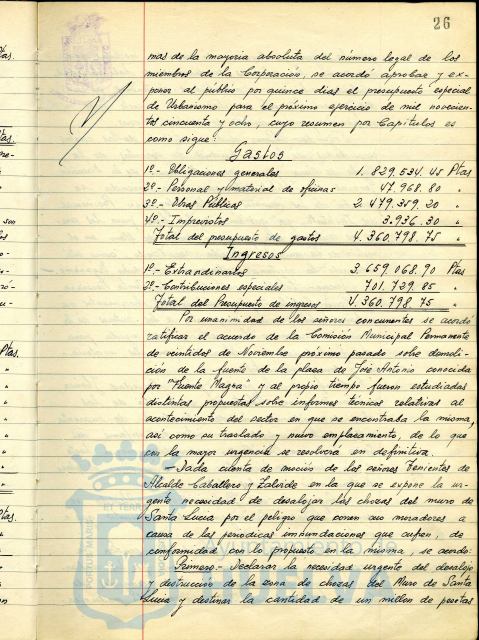 26
mas de la mayoria absoluta del número legal de los
miembros de la Corporación, se acordó aprobar y ex-
poner al público por quince dias el presupuesto especial
de Urbanismo para el próximo ejercicio de mil novecien-
tos cincuenta y ocho, cuyo resumen por Capitulos es
como sigue:
Gastos
1º.- Obligaciones generales 1.829.534.45 Ptas
2º.- Personal y material de oficinas 47.968.80 "
3º.- Obras Públicas 2.479.359.20 "
4º.- Imprevistos 3.936.30 "
Total del presupuesto de gastos 4.360.798.75 "
Ingresos
1º.- Extraordinarios 3.659.068.90 Ptas
2º.- Contribuciones especiales 701.729.85 "
Total del Presupuesto de ingresos 4.360.798.75 "
Por unanimidad de los señores concurrentes se acordó
ratificar el acuerdo de la Comisión Municipal Permanente
de veintidos de Noviembre próximo pasado sobre demoli-
ción de la fuente de la plaza de José Antonio conocida
por "Fuente Magna" y al propio tiempo fueron estudiadas
distintas propuestas sobre informes técnicos relativas al
acontecimiento del sector en que se encontraba la misma,
asi como su traslado y nuevo emplazamiento, de lo que
con la mayor urgencia se resolverá en definitiva.
Dada cuenta de moción de los señores Tenientes de
Alcalde Caballero y Zalorde en la que se expone la ur-
gente necesidad de desalojar las chozas del muro de
Santa Lucia por el peligro que corren sus moradores a
causa de las periodicas inmundaciones que sufren, de
conformidad con lo propuesto en la misma, se acordo:
Primero.- Declarar la necesidad urgente del desalojo
y destrucción de la zona de chozas del Muro de Santa
Lucia y destinar la cantidad de un millon de pesetas